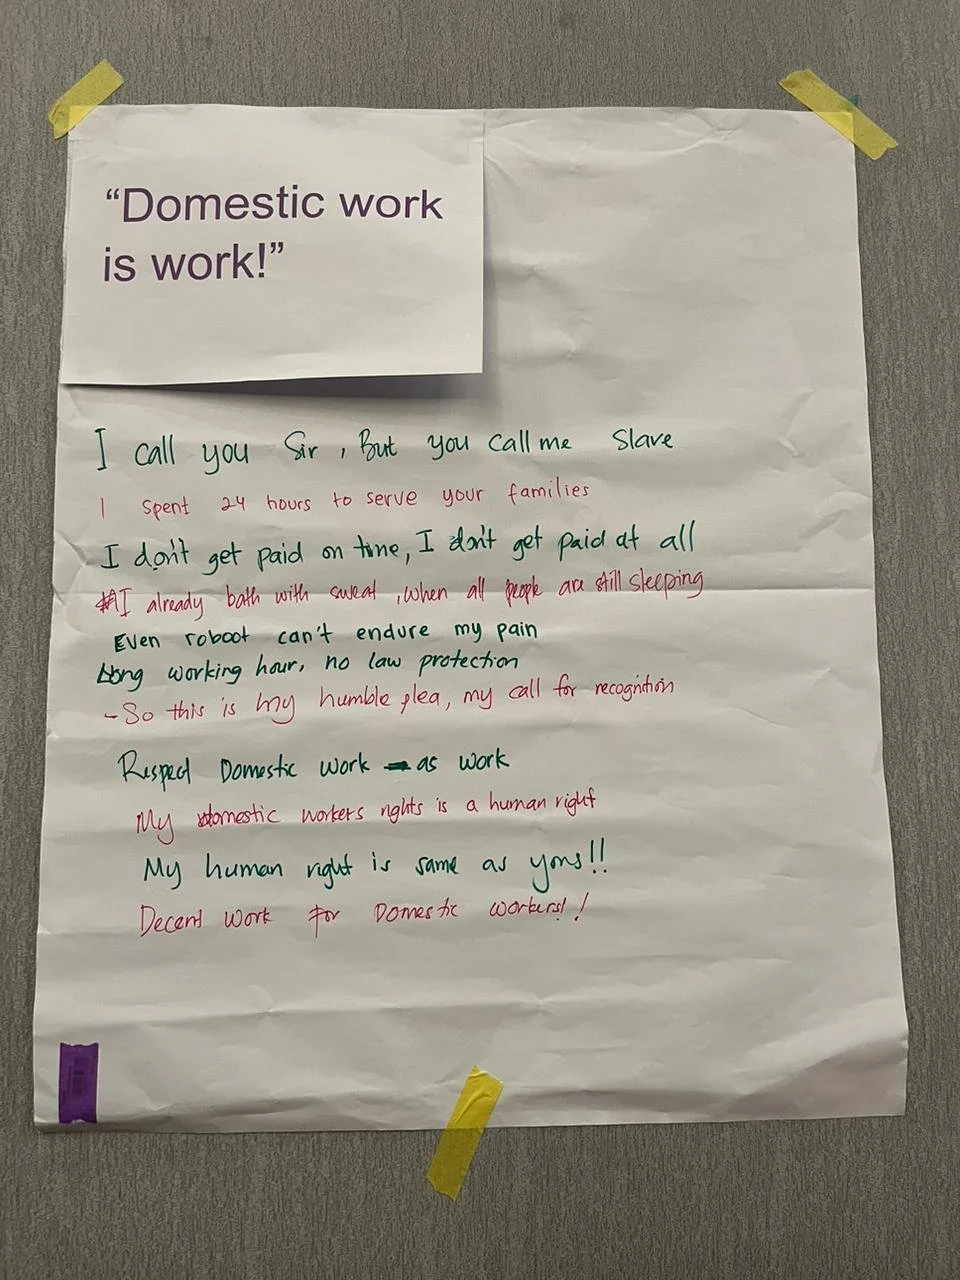 “Domestic work
is work!”
I call you Sir, But you call me Slave
I spent 24 hours to serve your families
I don't get paid on time, I don't get paid at all
I already bath with sweat, when all people are still sleeping
Even roboot can't endure my pain
Long working hour, no law protection
- So this is my humble plea, my call for recognition
Respect Domestic work as work
My domestic workers rights is a human right
My human right is same as yors!!
Decent work for Domestic workers!!